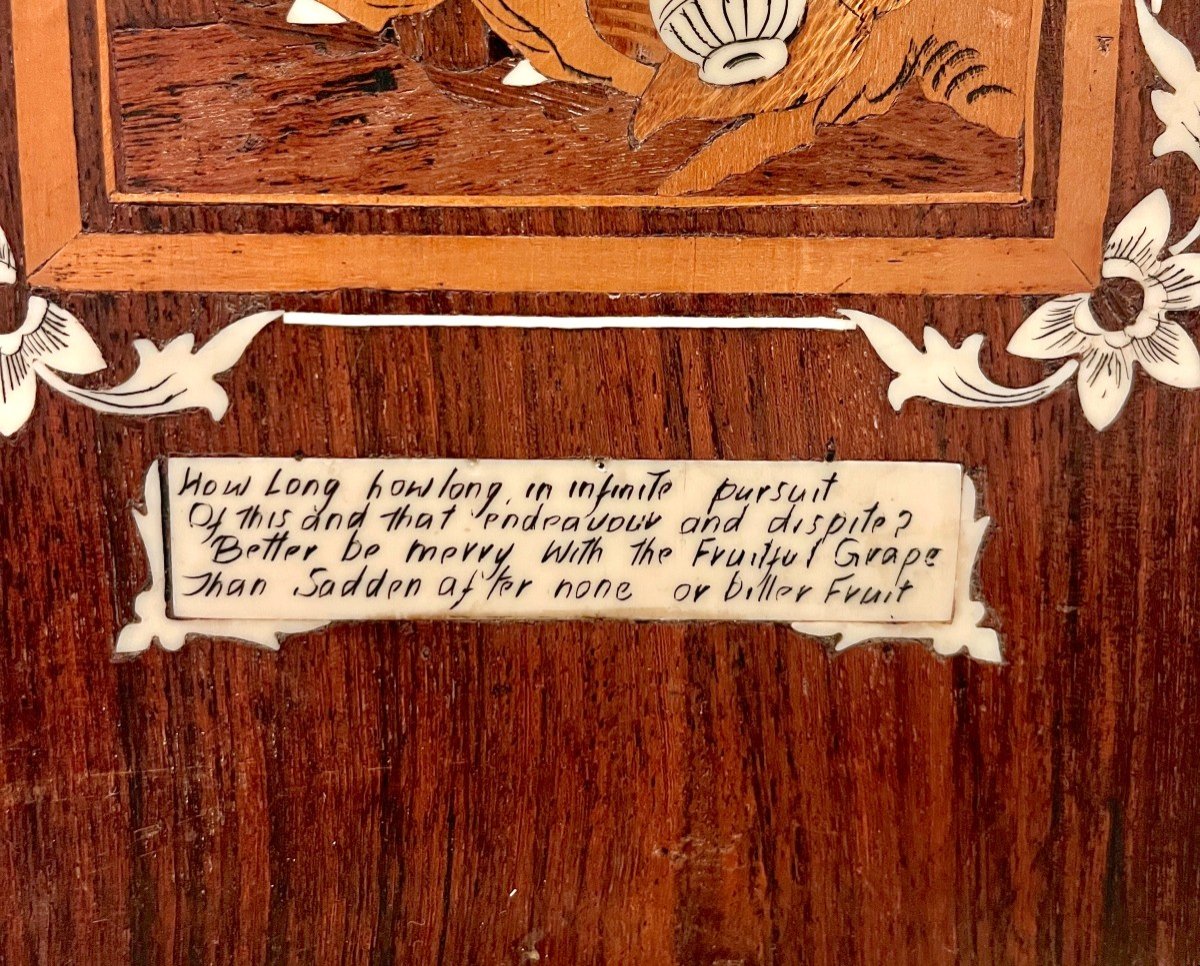 How Long how long, in infinite pursuit
Of This and That endeavour and dispite?
Better be merry with the Fruitful Grape
Than Sadden after none or biller Fruit